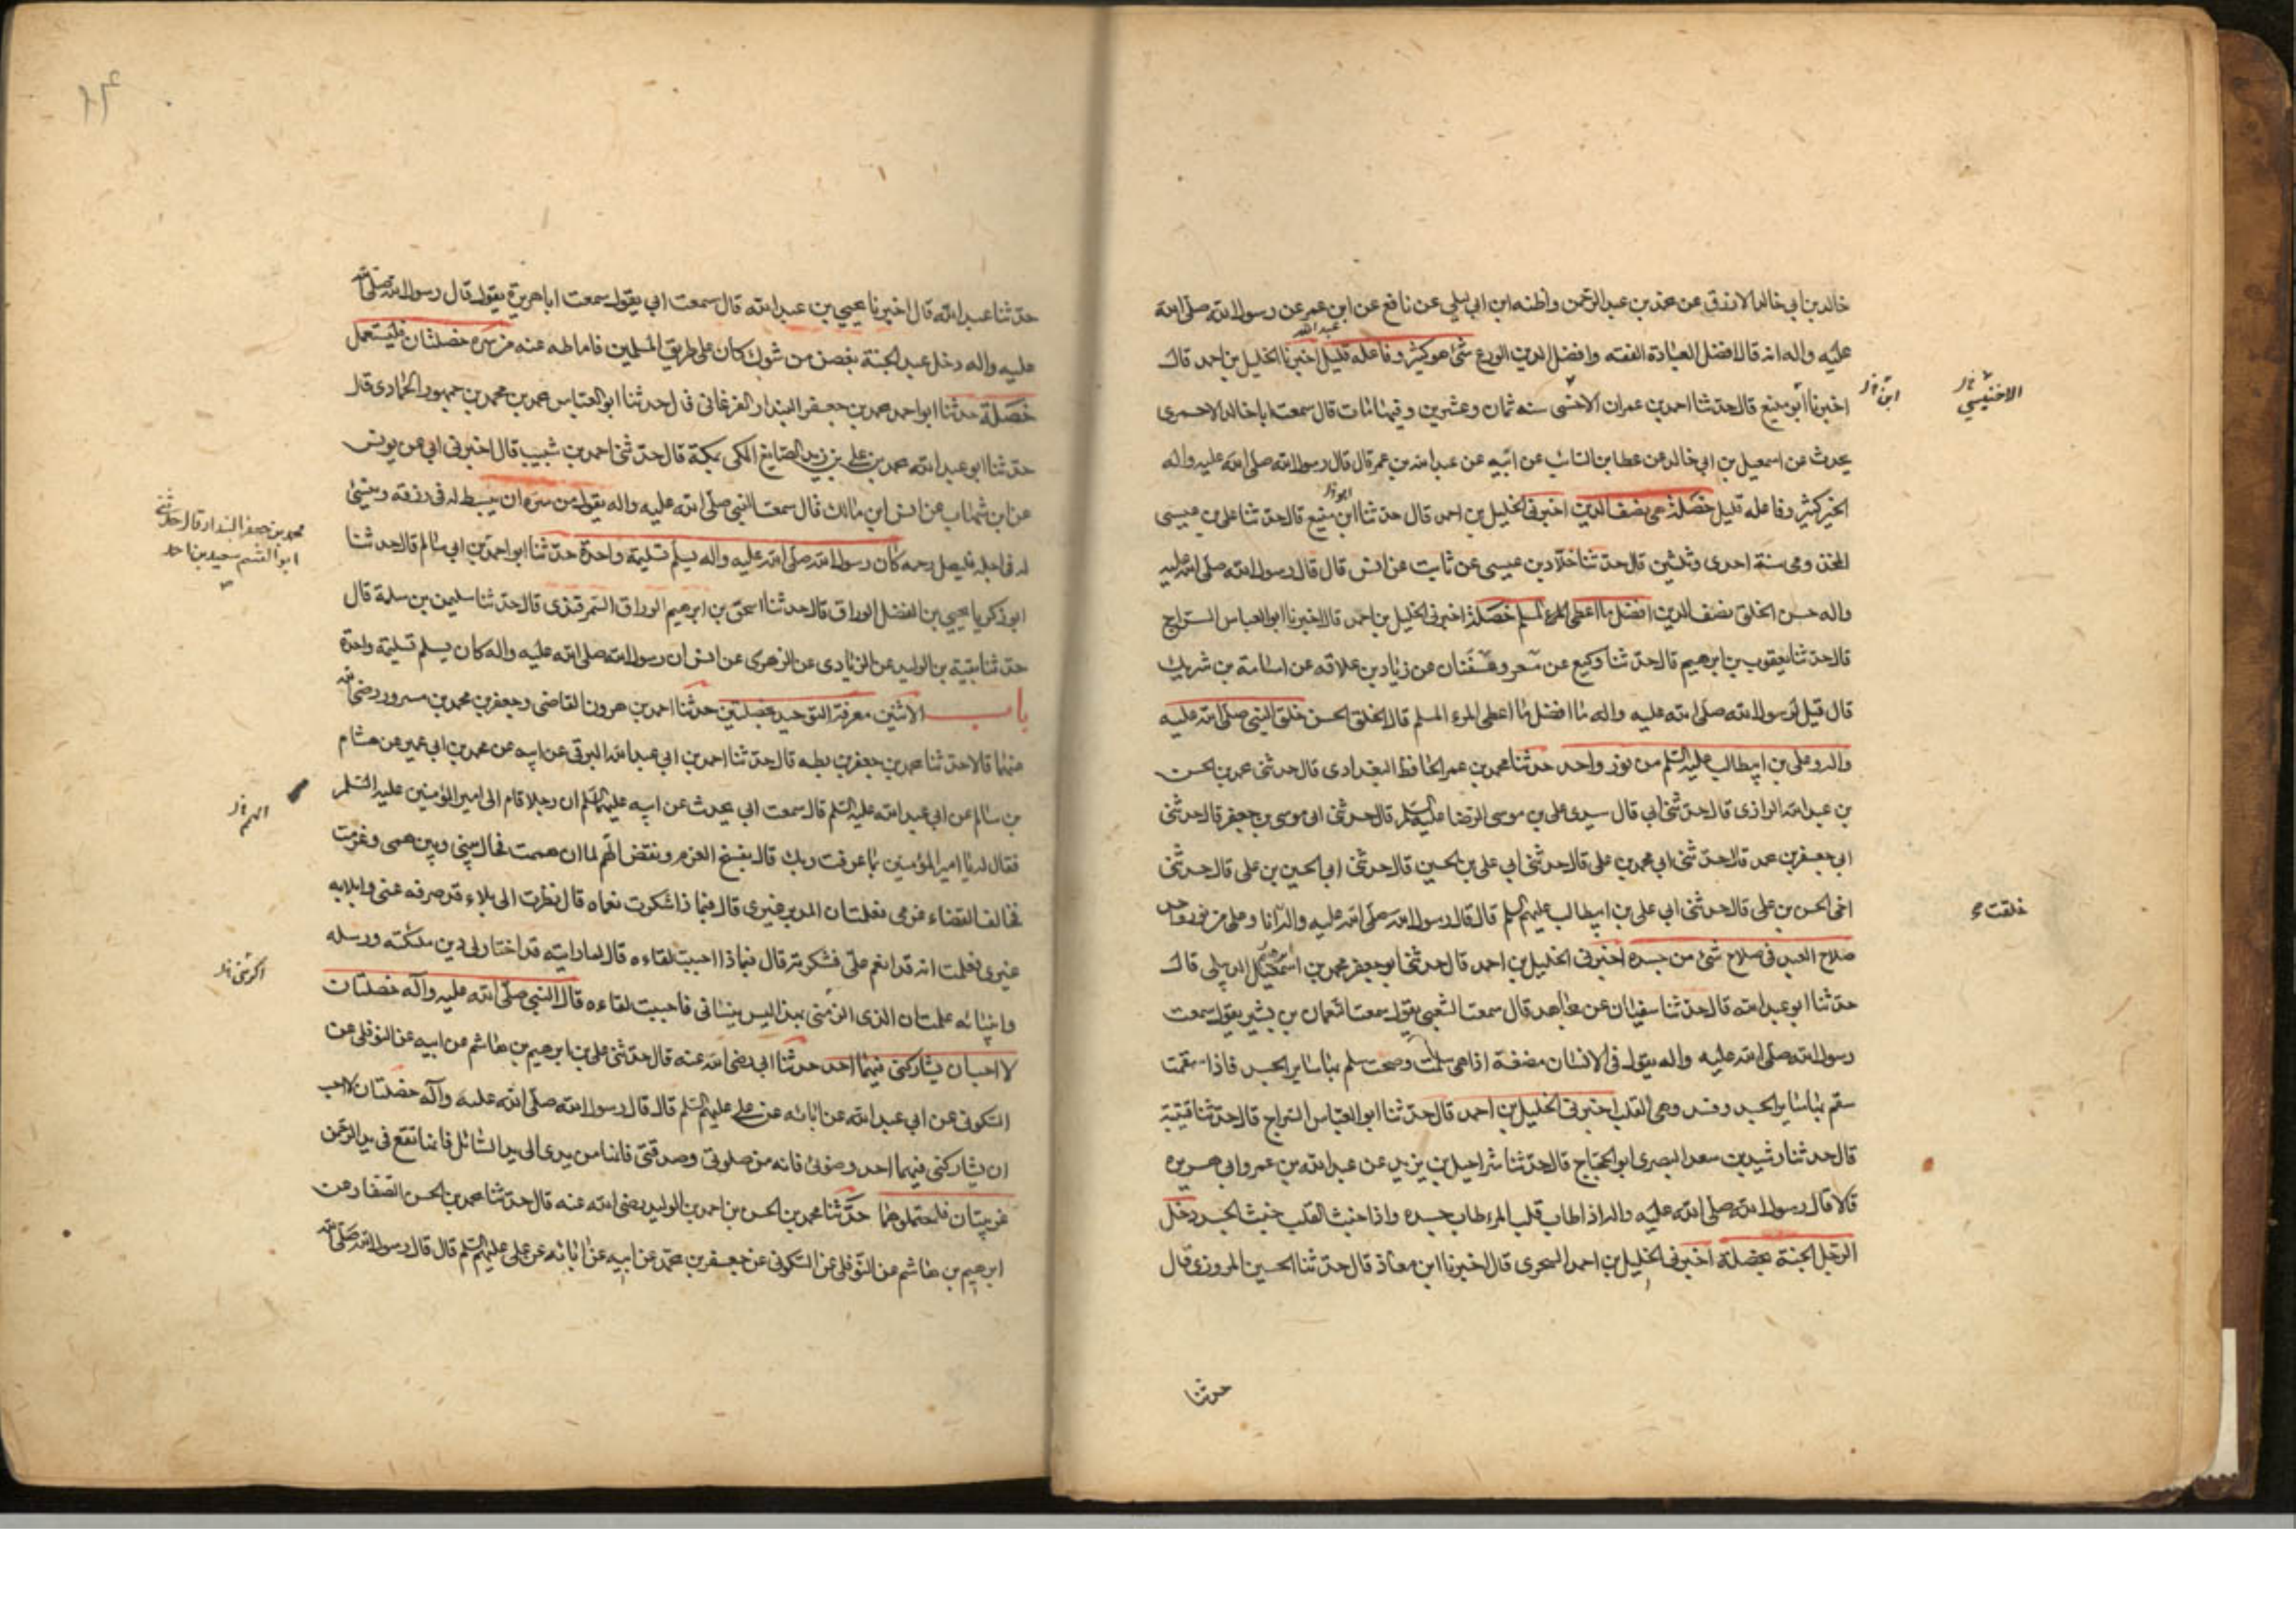 خالد بن ابي خالد الازرق عن محمد بن عبد الرحمن واظنه ابن ابي ليلى عن نافع عن ابن عمر عن رسول الله صلى الله
عليه واله انه قال افضل العبادة الفقه وافضل الدين الورع شئ هو كثير وفاعله قليل اخبرنا الخليل بن احمد قال
عبد الله
اخبرنا ابن منيع قال حدثنا احمد بن عمران الاخنسى سنه ثمان وعشرين وفيها مات قال سمعت ابا خالد الاحمرى
ابن
الاخنيسي
يحدث عن اسمعيل بن ابي خالد عن عطا بن السائب عن ابيه عن عبد الله بن عمر قال قال رسول الله صلى الله عليه واله
الخير كثير وفاعله قليل خصلة هى نصف الدين اخبرنى الخليل بن احمد قال حدثنا ابن منيع قال حدثنا على بن عيسى
المخذومى سنة احدى وثلثين قال حدثنا خلاد بن عيسى عن ثابت عن انس قال قال رسول الله صلى الله عليه
واله حسن الخلق نصف الدين افضل ما اعطى المرء المسلم خصلة اخبرنى الخليل بن احمد قال اخبرنا ابو العباس السراج
قال حدثنا يعقوب بن ابرهيم قال حدثنا وكيع عن مسعر وسفيان عن زياد بن علاقه عن اسامة بن شريك
قال قيل لرسول الله صلى الله عليه واله ما افضل ما اعطى المرء المسلم قال الخلق الحسن خلق النبى صلى الله عليه
واله وعلى بن ابيطالب عليه السلم من نور واحد حدثنا محمد بن عمر الحافظ البغدادى قال حدثنى محمد بن الحسن
بن عبد الله الرازى قال حدثنى ابي قال سيدى على بن موسى الرضا عليه السلم قال حدثنى ابى موسى بن جعفر قال حدثنى
ابى جعفر بن محمد قال حدثنى ابى محمد بن على قال حدثنى ابي على بن الحسين قال حدثنى ابى الحسين بن على قال حدثنى
اخى الحسن بن على قال حدثنى ابي على بن ابيطالب عليهم السلم قال قال رسول الله صلى الله عليه واله انا وعلى من نور واحد
خلقت
صلاح العبد فى صلاح شئ من جسده اخبرنى الخليل بن احمد قال حدثنا ابو جعفر محمد بن اسمعيل الديبلى قال
حدثنا ابو عبد الله قال حدثنا سفيان عن مجاهد قال سمعت الشعبي يقول سمعت النعمان بن بشير يقول سمعت
رسول الله صلى الله عليه واله يقول فى الانسان مضغة اذا هى سلمت وصحت سلم بها ساير الجسد فاذا سقمت
سقم بها ساير الجسد وفسد وهى القلب اخبرنى الخليل بن احمد قال حدثنا ابو العباس السراج قال حدثنا قتيبة
قال حدثنا رشيد بن سعد البصرى ابو الحجاج قال حدثنا شراحيل بن يزيد عن عبد الله بن عمر وابي هريره
قالا قال رسول الله صلى الله عليه واله اذا طاب قلب المرء طاب جسده واذا خبث القلب خبث الجسد دخل
الرجل الجنة بخصلة اخبرنى الخليل بن احمد السجزى قال اخبرنا ابن معاذ قال حدثنا الحسين المروزى قال
حدثنا
حدثنا عبد الله قال اخبرنا يحيى بن عبد الله قال سمعت ابي يقول سمعت ابا هريرة يقول قال رسول الله صلى الله
عليه واله دخل عبد الجنة بغصن من شوك كان على طريق المسلمين فاماطه عنه من سره خصلتان فليستعمل
خصلة حدثنا ابو احمد محمد بن جعفر البندار الفرغانى قال حدثنا ابو العباس محمد بن محمد بن جمهور الحمادى قال
حدثنا ابو عبد الله محمد بن على بن زيد الصايغ المكى بمكة قال حدثنى احمد بن شبيب قال اخبرنى ابى عن يونس
عن ابن شهاب عن انس ابن مالك قال سمعت النبى صلى الله عليه واله يقول من سره ان يبسط له فى رزقه وينسئ
محمد بن جعفر البندار قال حدثنى
ابو القسم سعيد بن احمد
له فى اجله فليصل رحمه كان رسول الله صلى الله عليه واله يسلم تسليمة واحدة حدثنا ابو احمد بن ابي سالم قال حدثنا
ابو زكريا يحيى بن الفضل الوراق قال حدثنا اسحق بن ابرهيم الوراق السمرقندى قال حدثنا سليمن بن سلمة قال
حدثنا بقية بن الوليد عن الزيادى عن الزهرى عن انس ان رسول الله صلى الله عليه واله كان يسلم تسليمة واحدة
باب الاثنين معرفة التوحيد بخصلتين حدثنا احمد بن هرون القاضى وجعفر بن محمد بن مسرور رضى الله
عنهما قالا حدثنا محمد بن جعفر بن بطه قال حدثنا احمد بن ابي عبد الله البرقى عن ابيه عن محمد بن ابى عمير عن هشام
بن سالم عن ابي عبد الله عليه السلم قال سمعت ابي يحدث عن ابيه عليهما السلم ان رجلا قام الى امير المؤمنين عليه السلم
الهم
فقال له يا امير المؤمنين بما عرفت ربك قال بفسخ العزم ونقض الهم لما ان هممت فحال بينى وبين همى وعزمت
فخالف القضاء عزمى فعلمت ان المدبر غيرى قال فبماذا شكرت نعماه قال نظرت الى بلاء قد صرفه عنى وابلا به
غيرى فعلمت انه قد انعم على فشكرته قال فبماذا احببت لقاءه قال لما رايته قد اختار لى دين ملئكته ورسله
وانبيائه علمت ان الذى اكرمنى بهذا ليس ينسانى فاحببت لقاءه قال النبى صلى الله عليه وآله خصلتان
اكرمنى
لا احب ان يشاركنى فيهما احد حدثنا ابي رضى الله عنه قال حدثنى على بن ابرهيم بن هاشم عن ابيه عن النوفلى عن
السكونى عن ابي عبد الله عن ابائه عن على عليهم السلم قال قال رسول الله صلى الله عليه وآله خصلتان لا احب
ان يشاركنى فيهما احد وضوئى فانه من صلوتى وصدقتى فانها من يدى الى يد السائل فانها تقع فى يد الرحمن
غريبتان فاحتملوهما حدثنا محمد بن الحسن بن احمد بن الوليد رضى الله عنه قال حدثنا محمد بن الحسن الصفار عن
ابرهيم بن هاشم عن النوفلى عن السكونى عن جعفر بن محمد عن ابيه عن ابائه عن على عليهم السلم قال قال رسول الله صلى الله